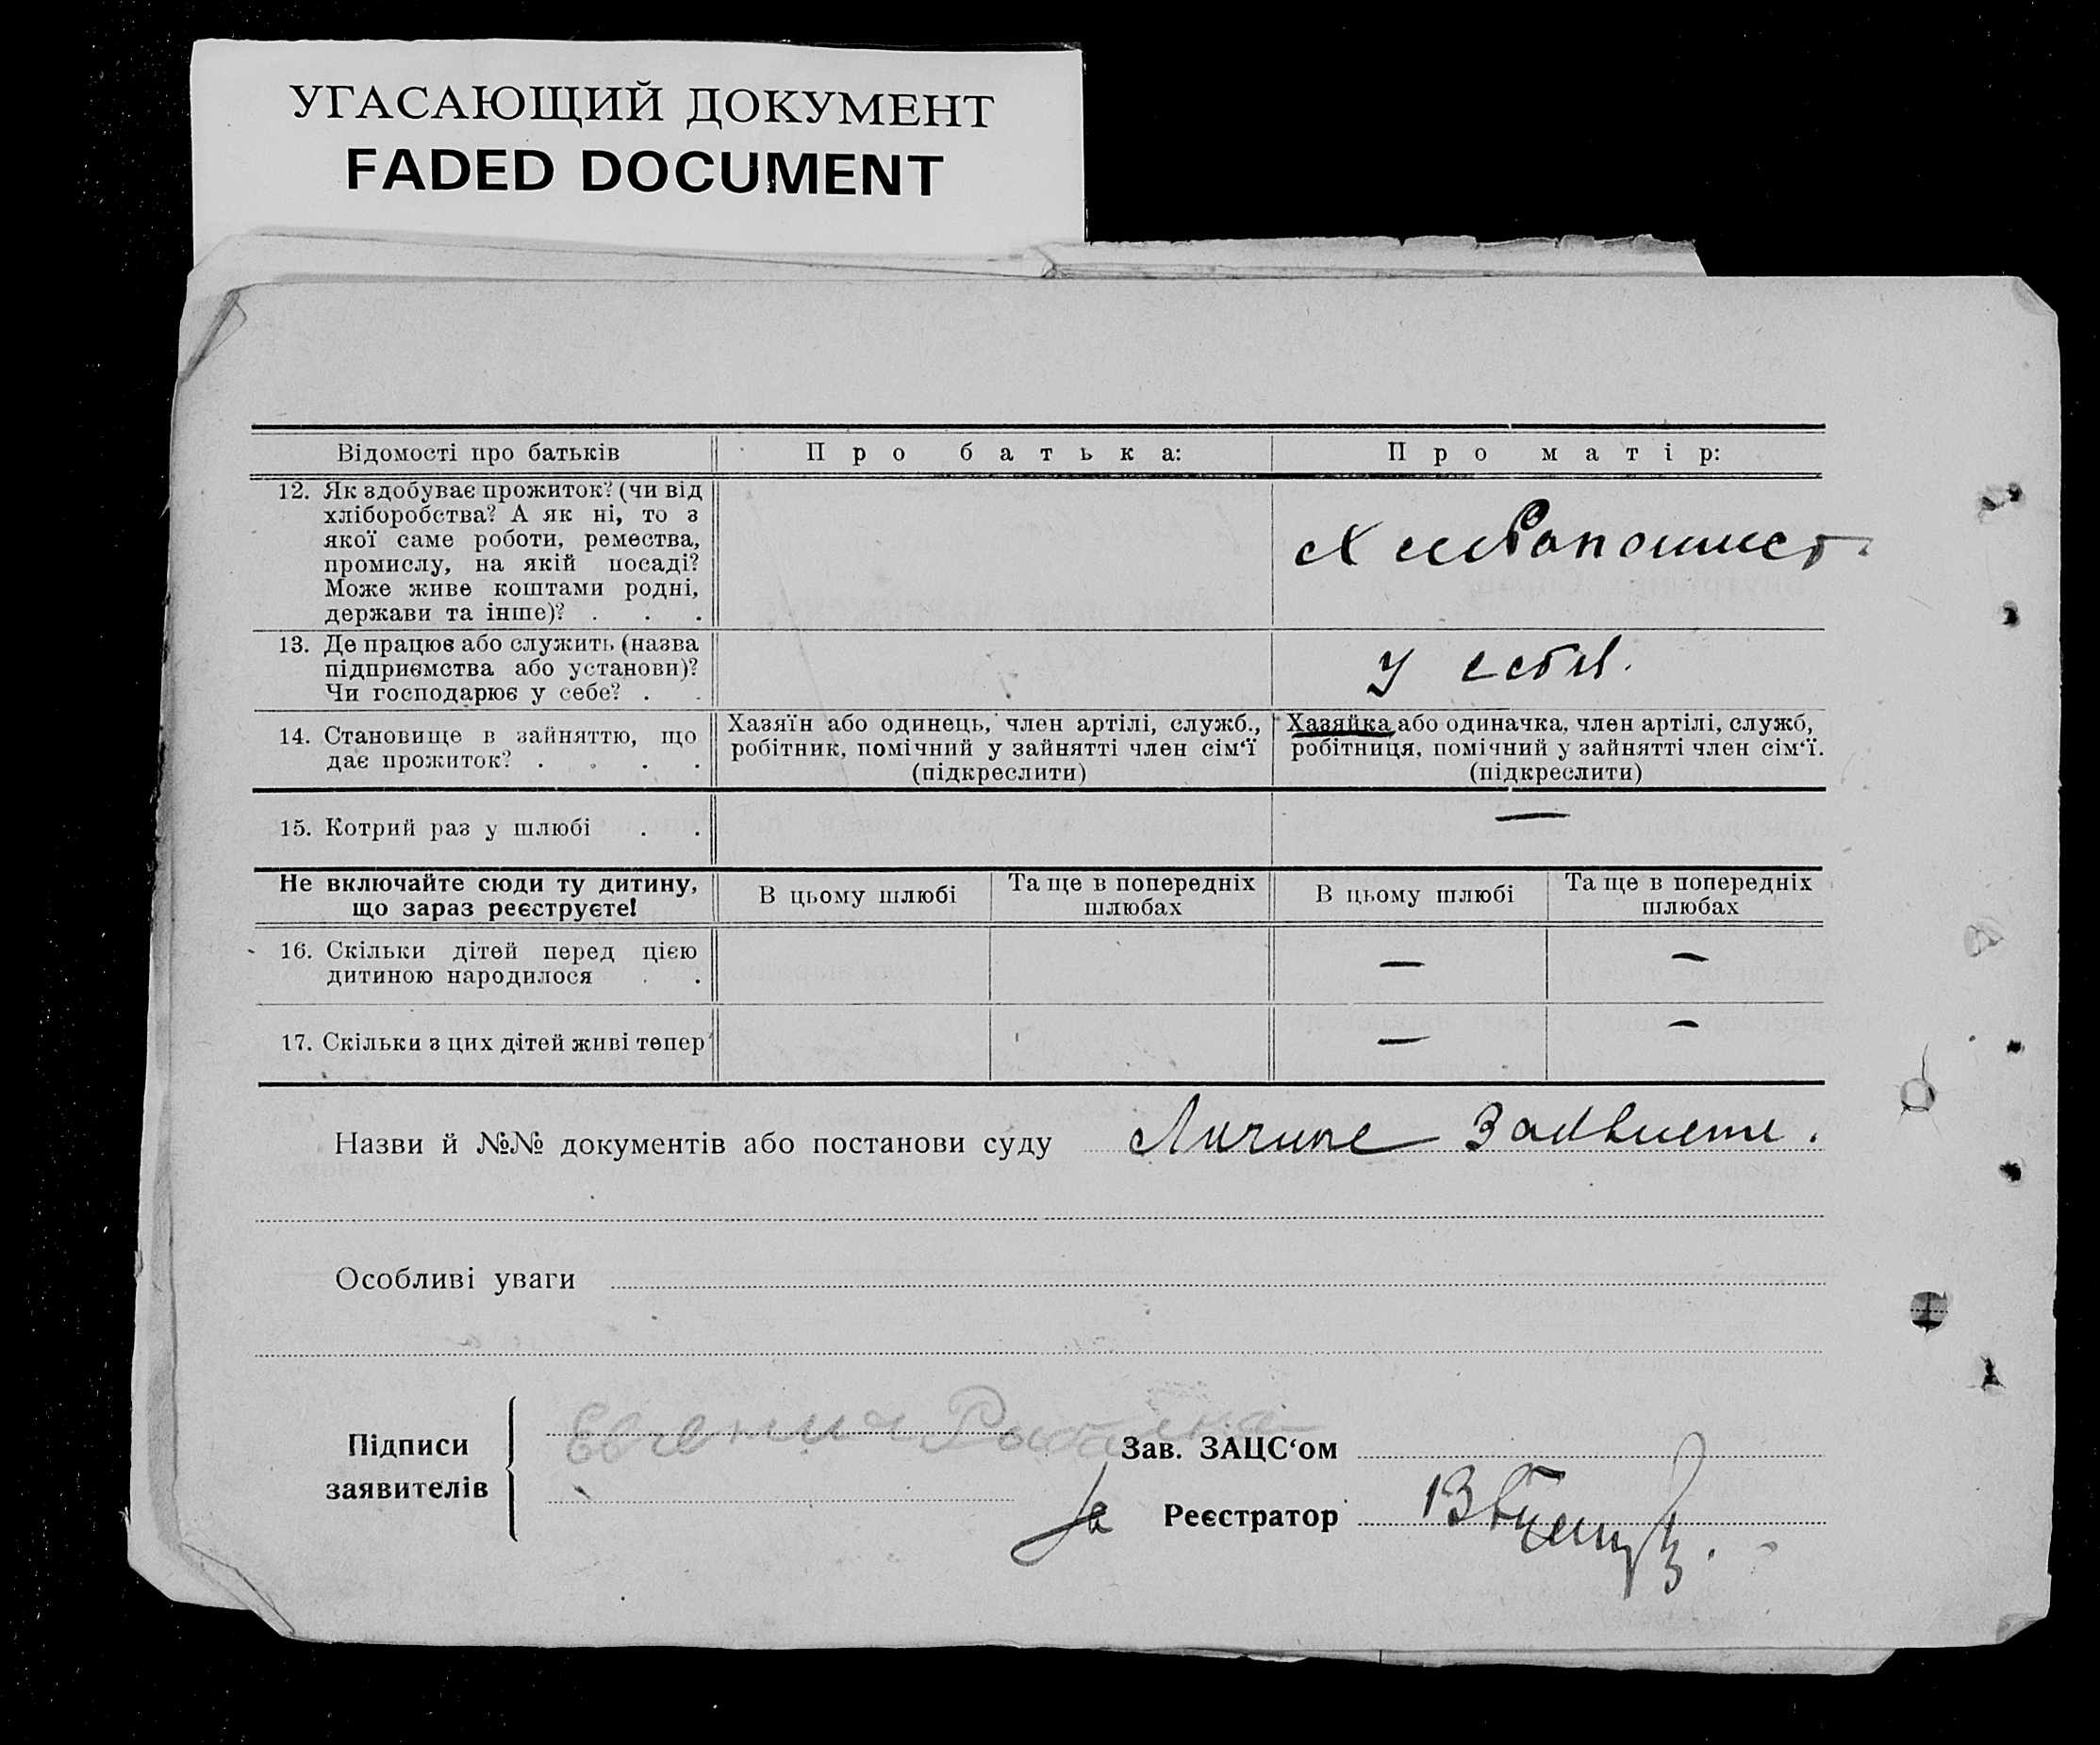 УГАСАЮЩИЙ ДОКУМЕНТ
FADED DOCUMENT
Відомості про батьків
Про батька:
Про матір:
12. Як здобуває прожиток? (чи від
хліборобства? А як ні, то з
якої саме роботи, ремества,
промислу, на якій посаді?
Може живе коштами родні,
держави та інше)? . . .
13. Де працює або служить (назва
підприємства або установи)?
Чи господарює у себе? . .
У себе.
14. Становище в зайняттю, що
дає прожиток? . . . .
Хазяїн або одинець, член артілі, служб.,
робітник, помічний у зайнятті член сім‘ї
(підкреслити)
Хазяйка або одиначка, член артілі, служб,
робітниця, помічний у зайнятті член сім‘ї.
(підкреслити)
15. Котрий раз у шлюбі . .
—
Не включайте сюди ту дитину,
що зараз реєструєте!
В цьому шлюбі
Та ще в попередніх
шлюбах
В цьому шлюбі
Та ще в попередніх
шлюбах
16. Скільки дітей перед цією
дитиною народилося . .
— —
17. Скільки з цих дітей живі тепер
— —
Назви й №№ документів або постанови суду
Особливі уваги
Підписи
заявителів
Зав. ЗАЦС‘ом
Реєстратор